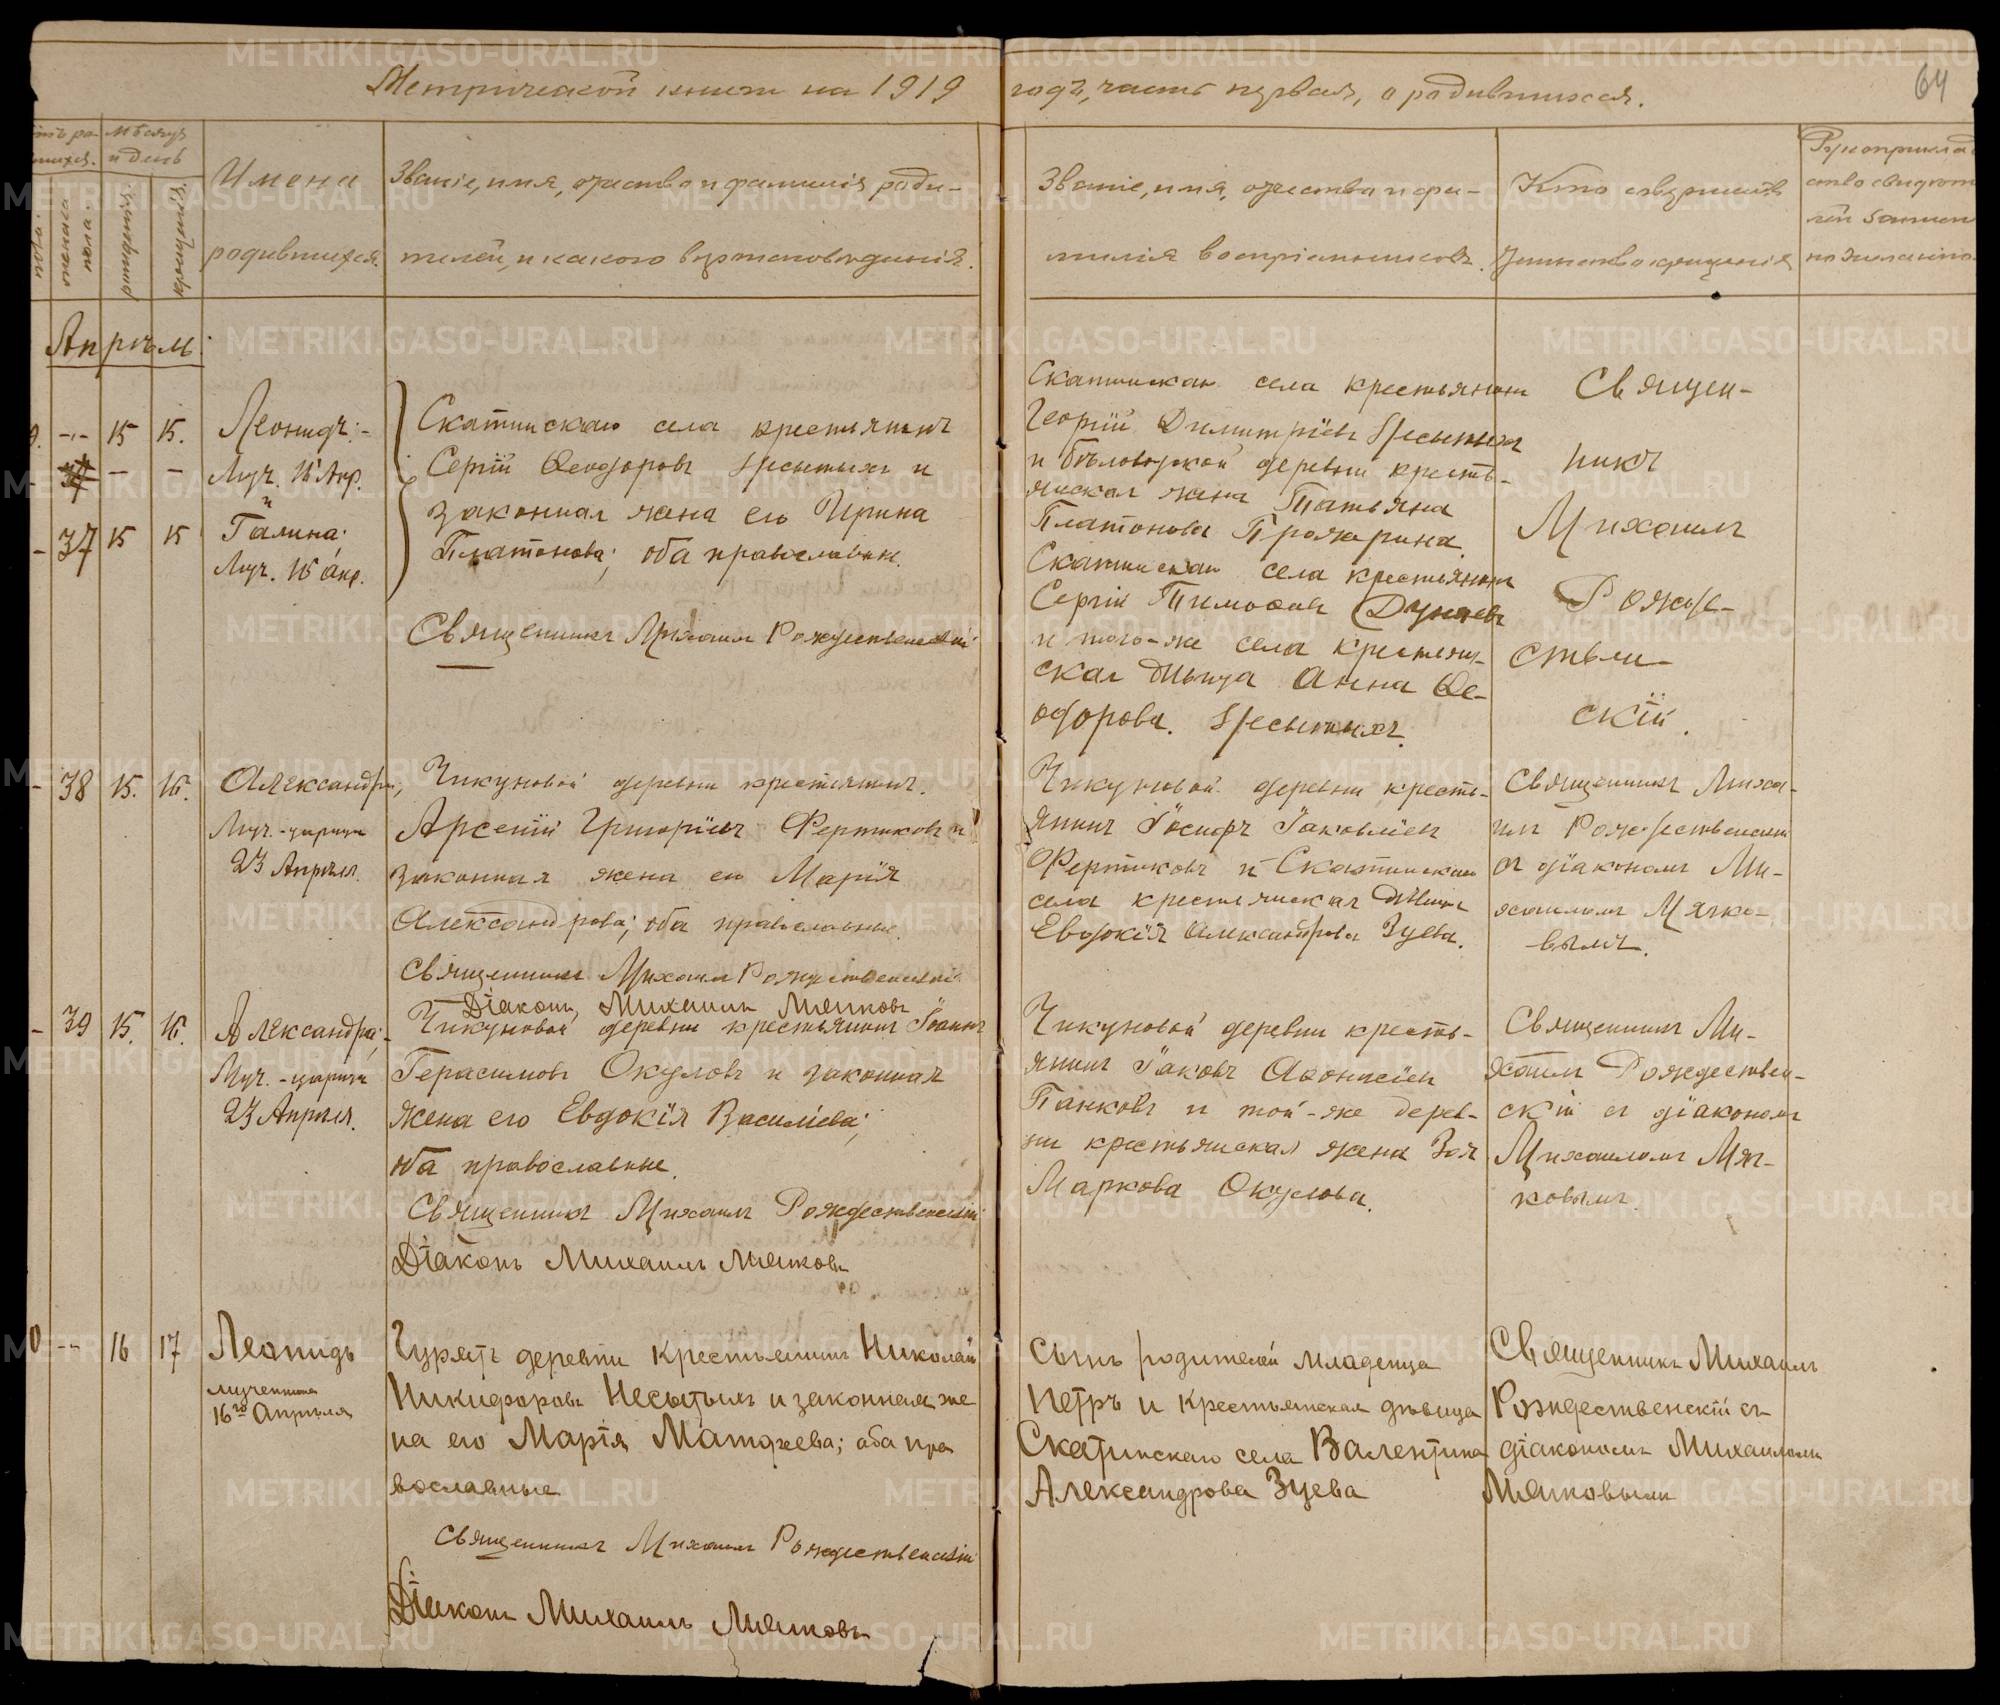 Метрической книги на 1919 годъ, часть первая, о родившихся.
64
Мѣсяцъ и день
женска пола.
рожденія.
крещенія.
Имена
родившихся.
Званіе, имя, отчество и фамилія роди-
телей, и какого вѣроисповѣданія.
Званіе, имя, отчество и фа-
милія воспріемниковъ.
Кто совершалъ
таинство крещенія
Рукоприклад
ство свидѣте
лей записи
по желанію.
Апрѣль
-"- 15 15.
Леонидъ.-
Муч. 16 Апр.
и
- 37 15 15
Галина.
Муч. 16 апр.
Скатинскаго села крестьянинъ
Сергій Ѳеодоровъ Несытыхъ и
законная жена его Ирина
Платонова; оба православные.
Священникъ Михаилъ Рождественскій
Скатинскаго села крестьянинъ
Георгій Димитріевъ Несытыхъ
и Бѣловодской деревни кресть-
янская жена Татьяна
Платонова Прожерина.
Скатинскаго села крестьянинъ
Сергій Тимофеевъ Дунаевъ
и того-же села крестьян-
ская дѣвица Анна Ѳе-
одорова Несытыхъ.
Священ-
никъ
Михаилъ
Рожде-
ствен-
скій.
- 38 15. 16.
Александра,
Муч.-царица
23 Апрѣля.
Чикуновой деревни крестьянинъ
Арсеній Григоріевъ Фертиковъ и
законная жена его Марія
Александрова; оба православные.
Священникъ Михаилъ Рождественскій
Діаконъ Михаилъ Мячковъ
Чикуновой деревни кресть-
янинъ Іосифъ Іаковлевъ
Фертиковъ и Скатинскаго
села крестьянская дѣвица
Евдокія Александрова Зуева.
Священникъ Миха-
илъ Рождественскій
съ діакономъ Ми-
хаиломъ Мячко-
вымъ.
- 39 15. 16.
Александра;-
Муч.-царица
23 Апрѣля.
Чикуновой деревни крестьянинъ Іоаннъ
Герасимовъ Окуловъ и законная
жена его Евдокія Василіева;
оба православные.
Священникъ Михаилъ Рождественскій
Діаконъ Михаилъ Мячковъ
Чикуновой деревни кресть-
янинъ Іаковъ Аѳонасіевъ
Панковъ и той-же дерев-
ни крестьянская жена Зоя
Маркова Окулова.
Священникъ Ми-
хаилъ Рождествен-
скій съ діакономъ
Михаиломъ Мяч-
ковымъ.
0 -- 16 17
Леонидъ
мученика
16го Апрѣля
деревни крестьянинъ Николай
Никифоровъ Несытыхъ и законная же
на его Марія Матѳеева; оба пра
вославные
Священникъ Михаилъ Рождественскій
Діаконъ Михаилъ Мячковъ
Сынъ родителей младенца
Петръ и крестьянская дѣвица
Скатинскаго села Валентина
Александрова Зуева
Священникъ Михаилъ
Рождественскій съ
діакономъ Михаиломъ
Мячковымъ
METRIKI.GASO-URAL.RU